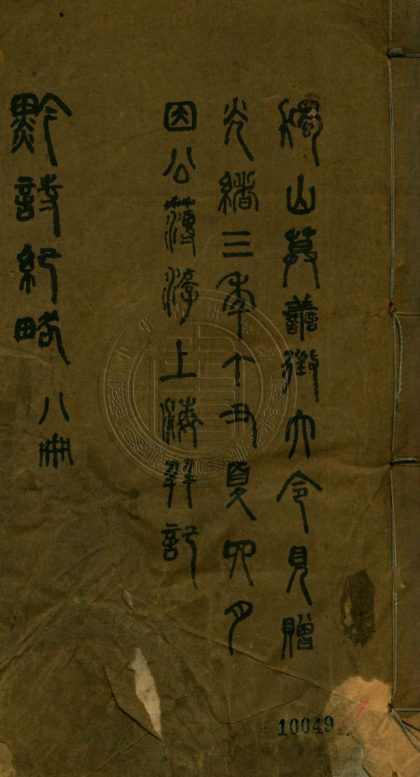 獨山莫善徵大令見贈
光緒三年丁丑夏四月
因公薄游上海記
黔詩紀略 八冊
10049